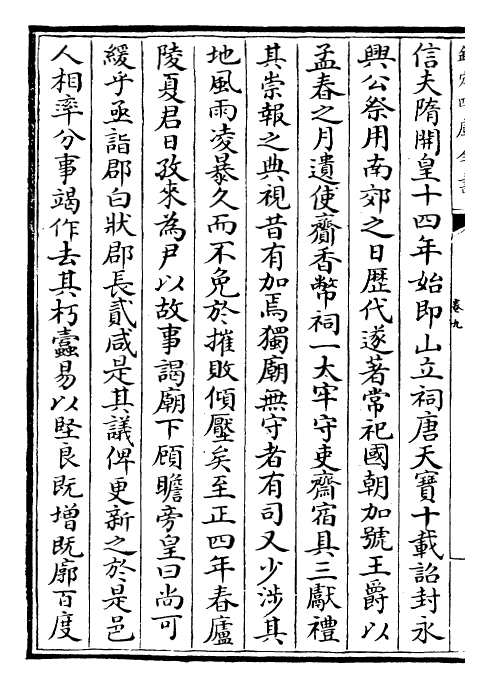 欽定四庫全書
卷九
信夫隋開皇十四年始即山立祠唐天寶十載詔封永
興公祭用南郊之日歷代遂著常祀國朝加號王爵以
孟春之月遣使齎香幣祠一太牢守吏齋宿具三獻禮
其崇報之典視昔有加焉獨廟無守者有司又少涉其
地風雨凌暴久而不免於摧敗傾壓矣至正四年春廬
陵夏君日孜來為尹以故事謁廟下顧瞻旁皇曰尚可
緩乎亟詣郡白狀郡長貳咸是其議俾更新之於是邑
人相率分事竭作去其朽蠹易以堅良既增既廓百度